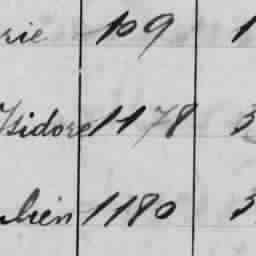 rie 109 1
Isidore 1178 3
ulien 1180 3